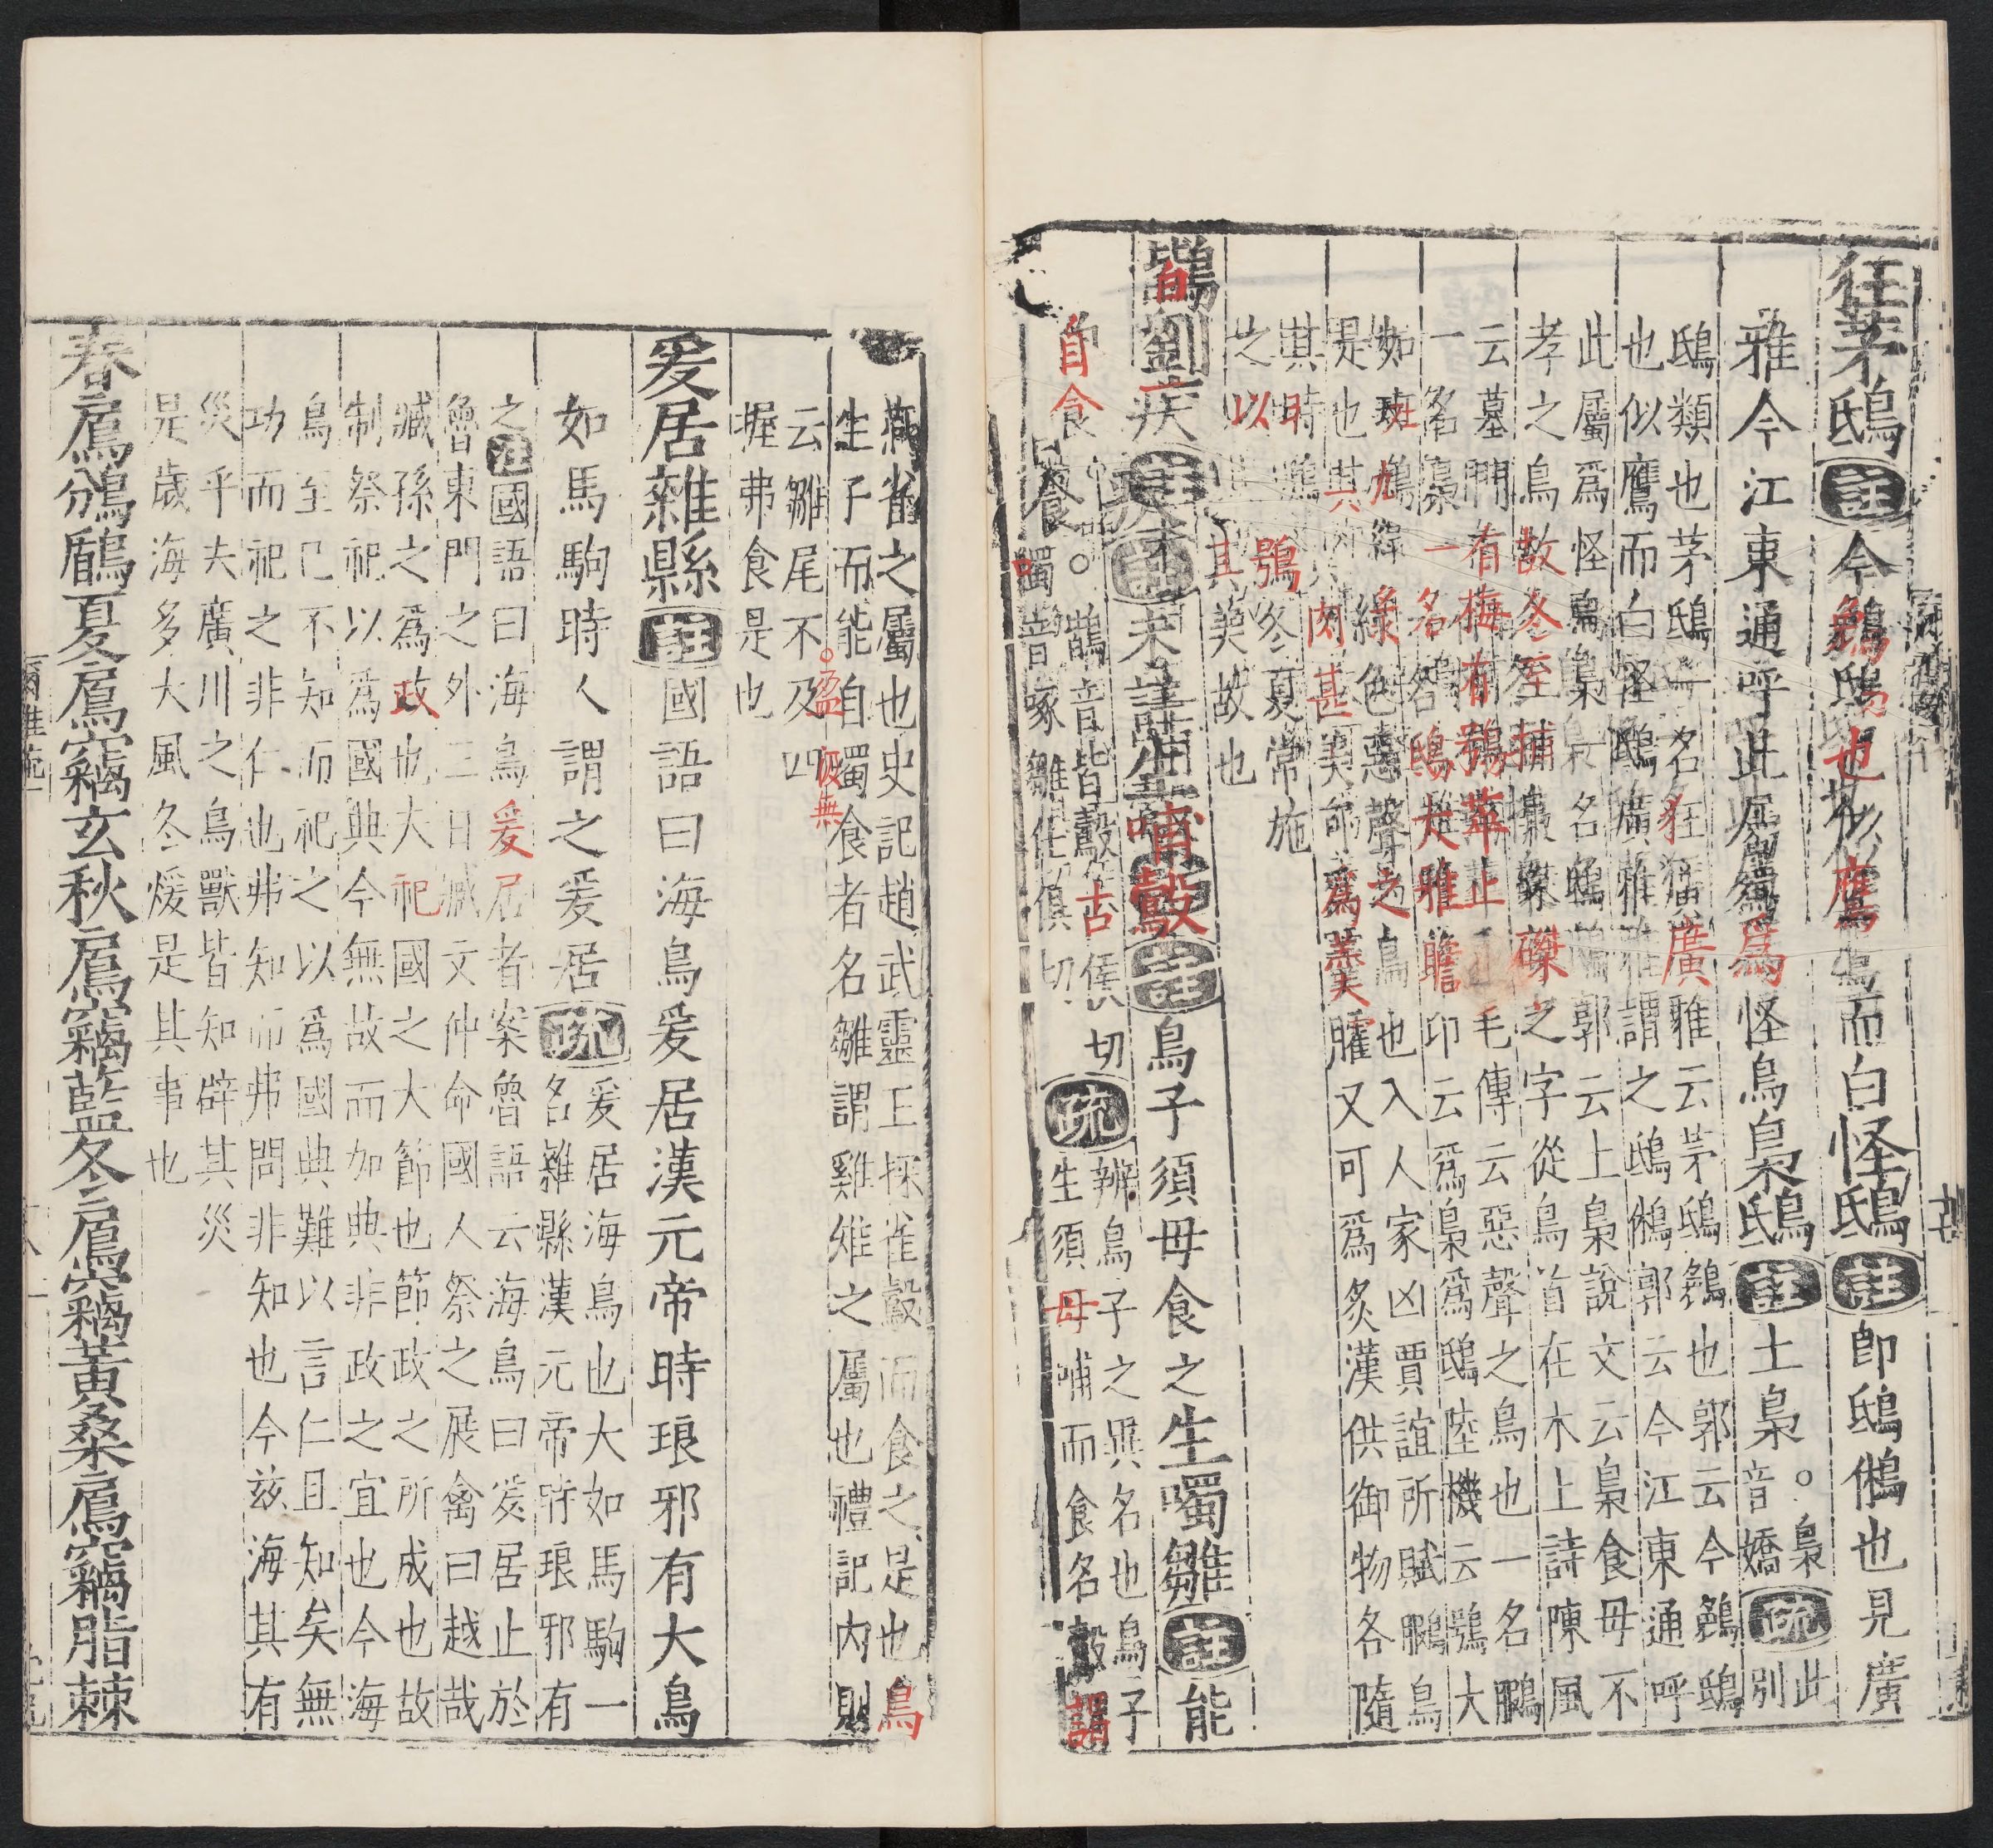 狂茅鴟註今鵵鴟也似鷹而白怪鴟註即鴟鵂也見廣
雅今江東通呼此屬爲怪鳥梟鴟註土梟。梟音嬌疏此別
鴟類也茅鴟一名狂廣雅云茅鴟鵵也郭云今鵵鴟
也似鷹而白怪鴟廣雅謂之鴟鵂郭云今江東通呼
此屬爲怪鳥梟一名鴟郭云土梟說文云梟食母不
孝之鳥故冬至捕梟磔之字從鳥首在木上詩陳風
云墓門有梅有鴞萃止毛傳云惡聲之鳥也一名鵬
一名梟一名鴟大雅瞻卬云爲梟爲鴟陸機云鴞大
如班鳩綠色惡聲之鳥也入人家凶賈誼所賦鵬鳥
是也其肉甚美可爲羹臛又可爲炙漢供御物各隨
其時鴞冬夏常施
之以其美故也
鶛劉疾註未詳生哺鷇註鳥子須母食之生噣雛註能
自食。鶛音皆鷇古侯切
噣音啄雛仕俱切疏辨鳥子之異名也鳥子
生須母哺而食名鷇謂
燕雀之屬也史記趙武靈王探雀鷇而食之是也鳥
生子而能自噣食者名雛謂雞雉之屬也禮記內則
云雛尾不盈
握弗食是也
爰居雜縣註國語曰海鳥爰居漢元帝時琅邪有大鳥
如馬駒時人謂之爰居疏爰居海鳥也大如馬駒一
名雜縣漢元帝時琅邪有
之注國語曰海鳥爰居者案魯語云海鳥曰爰居止於
魯東門之外三日臧文仲命國人祭之展禽曰越哉
臧孫之爲政也大祀國之大節也節政之所成也故
制祭祀以爲國典今無故而加典非政之宜也今海
鳥至已不知而祀之以爲國典難以言仁且知矣無
功而祀之非仁也弗知而弗問非知也今茲海其有
災乎夫廣川之鳥獸皆知辟其災
是歲海多大風冬煖是其事也
春鳸鳻鶞夏鳸竊玄秋鳸竊藍冬鳸竊黃桑鳸竊脂棘